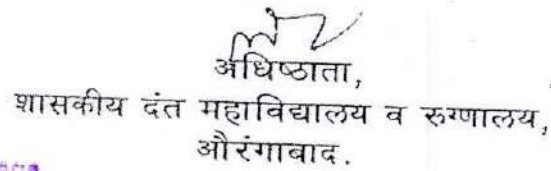 अधिष्ठाता,
शासकीय दंत महाविद्यालय व रुग्णालय,
औरंगाबाद.